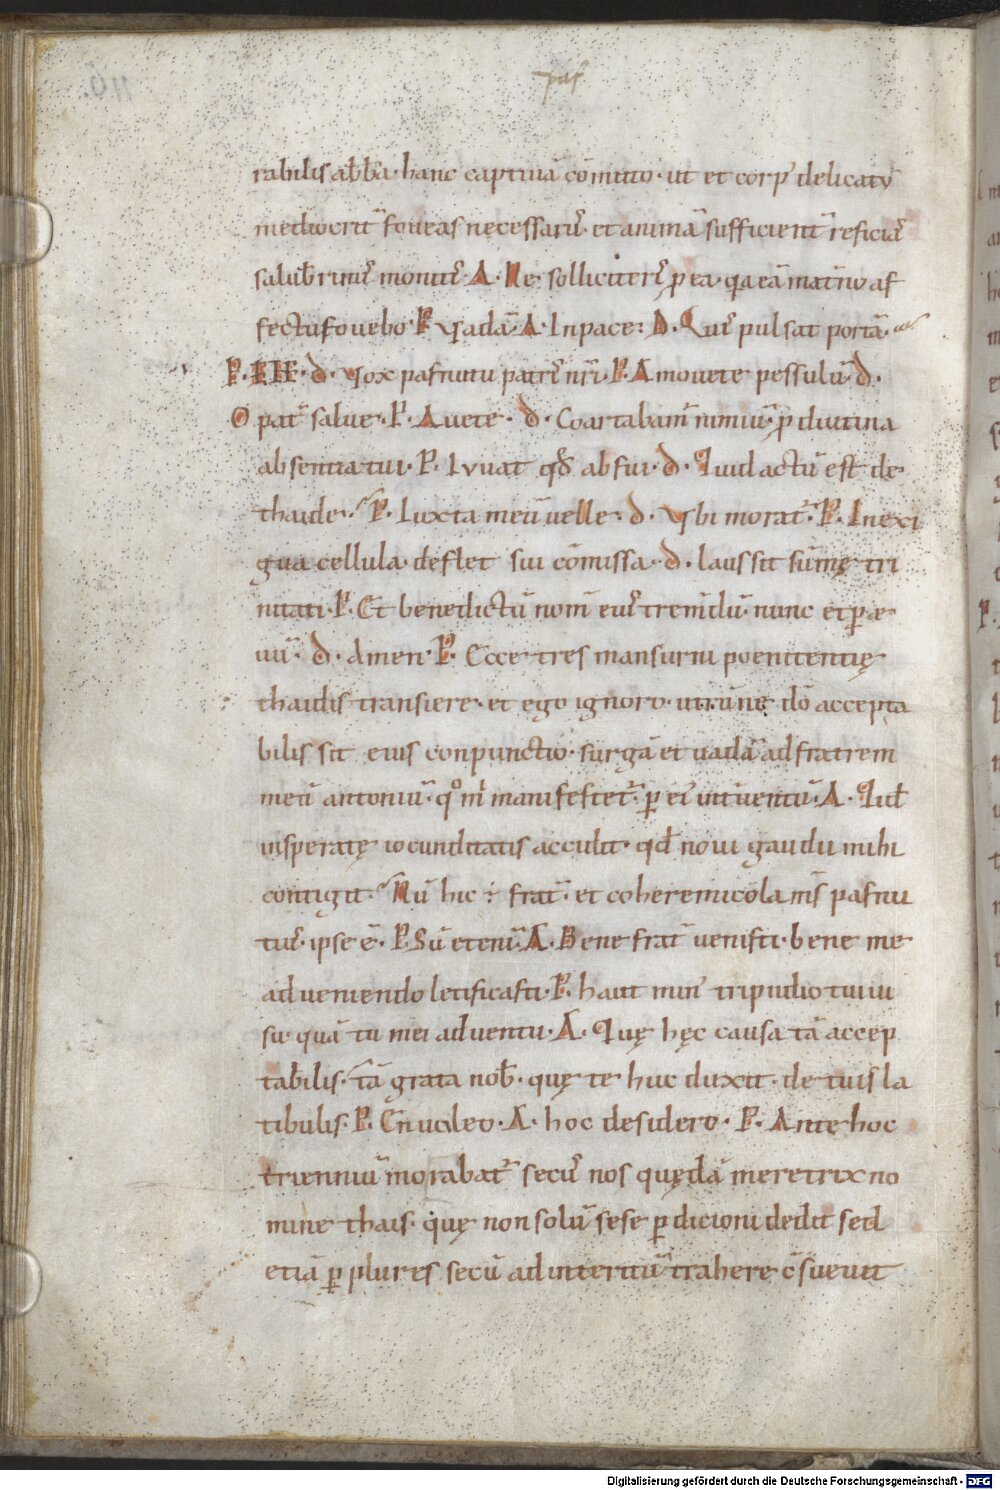 paf
rabilis abb̄a· hanc captiuā cōmitto· ut et corp' delicatū
mediocrit̄ foueas necessariis· et animā sufficient̄ reficias
salub̄rimis monitis· A· Ne solliciteris p̱ ea· q̱a eā mat̄no af
fectu fouebo· P Vadā· A· In pace: D. Quis pulsat portā·
P· EH· d· Vox pafnutii patris nr̄i· P· Amouete pessulū d·
O pat̄ salue· P· Auete· d· Coartabam' nimiū p̱ diutina
absentia tui· P· Iuuat qđ abfui· d· Quid actū est de
thaide· P· Iuxta meū uelle· d· Vbi morat'· P· In exi
gua cellula· deflet sui cōmissa· d· laus sit sūmę tri
nitati· P· Et benedictū nom̄ eius tremdū· nunc et p̱ æ
uū· d· Amen· P· Ecce tres mansurni poenitentię
thaidis transiere· et ego ignoro· utrūne dō accepta
bilis sit eius conpunctio· surgā et uadā ad fratrem
meū antoniū· qͦ m̄ manifestet'· p̱ ei' int̄uentū· A· Quid
insperatę iocunditatis accidit· qđ noui gaudii mihi
contigit· Nū hic ÷ frat̄· et coheremicola m̄s pafnu
tius· ipse ē· P· Sū etenī· A· Bene frat̄ uenisti· bene me
adueniendo letificasti· P· haut min' tripudio tui ui
su· quā tu mei aduentu· A· Quę hęc causa tā accep
tabilis· tā grata nob̄· quę te huc duxit· de tuis la
tibulis· P· Enucleo· A· hoc desidero· P· Ante hoc
trienniū morabat' secus nos quędā meretrix no
mine thais· quę non solū sese p̱dicioni dedit sed
etiā p̱plures secū ad interitū trahere c̄sueuit
Digitalisierung gefördert durch die Deutsche Forschungsgemeinschaft - DFG